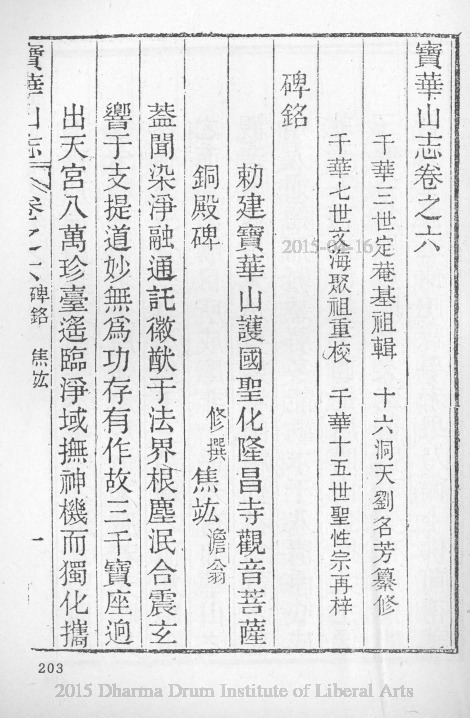 寶華山志卷之六
千華三世定菴基祖輯　十六洞天劉名芳纂修
千華七世文海聚祖重校　千華十五世聖性宗再梓
碑銘
勅建寶華山護國聖化隆昌寺觀音菩薩
銅殿碑　修撰焦竑澹翁
葢聞染淨融通託徽猷于法界根塵泯合震玄
響于支提道妙無爲功存有作故三千寶座逈
出天宮八萬珍臺遙臨淨域撫神機而獨化攜
寶華山志 卷之六 碑銘 焦竑 一
203
2015-04-16
2015 Dharma Drum Institute of Liberal Arts